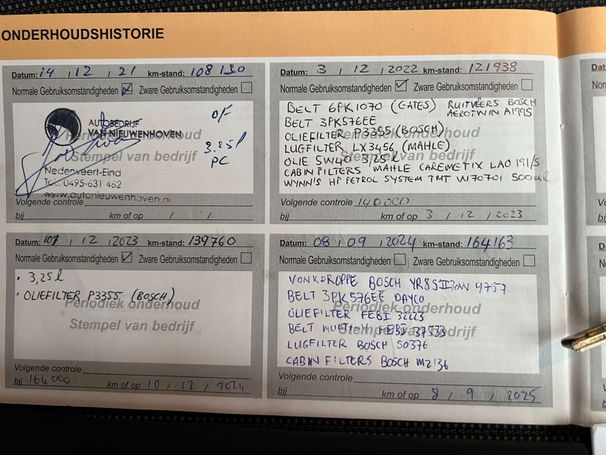 ONDERHOUDSHISTORIE
Datum: 14 / 12 / 21 km-stand: 108130
Normale Gebruiksomstandigheden Zware Gebruiksomstandigheden
AUTOBEDRIJF
VAN NIEUWENHOVEN
O/F
3.25l
PC
Periodiek onderhoud
Stempel van bedrijf
Nederweert-Eind
Tel.: 0495-631 462
www.autonieuwenhoven.nl
Volgende controle
bij km of op / /
Datum: 3 / 12 / 2022 km-stand: 121938
Normale Gebruiksomstandigheden Zware Gebruiksomstandigheden
BELT 6PK1070 (GATES) RUITWERS BOSCH
BELT 3PK576EE AEROTWIN A199S
OLIEFILTER P3355 (BOSCH)
LUGFILTER LX3456 (MAHLE)
OLIE 5W40 3,25l
CABIN FILTERS MAHLE CAREMETIX LAO 191/S
WYNN'S HP PETROL SYSTEM TMT W70701 500ml
Volgende controle 140.000
bij km of op 3 / 12 / 2023
Datum: 10 / 12 / 2023 km-stand: 139760
Normale Gebruiksomstandigheden Zware Gebruiksomstandigheden
• 3,25l
• OLIEFILTER P3355 (BOSCH)
Periodiek onderhoud
Stempel van bedrijf
Volgende controle
bij 164000 km of op 10 / 12 / 2024
Datum: 08 / 09 / 2024 km-stand: 164163
Normale Gebruiksomstandigheden Zware Gebruiksomstandigheden
BOSCH
BELT 3PK576EE DAYCO
OLIEFILTER FEBI 32223
BELT FEBI
LUGFILTER BOSCH S0376
CABIN FILTERS BOSCH M2136
Periodiek onderhoud
Stempel van bedrijf
Volgende controle
bij km of op 8 / 9 / 2025